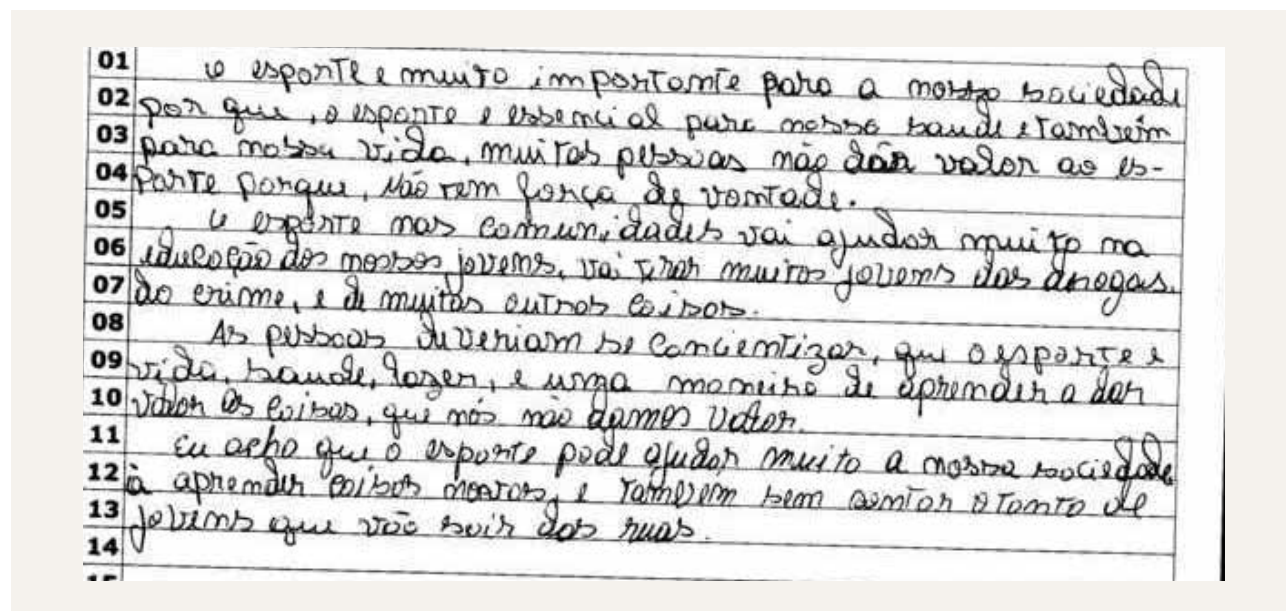 01 O esporte e muito importante para a nossa sociedade
02 por que, o esporte e essencial para nossa saude e também
03 para nossa vida, muitas pessoas não dão valor ao es-
04 porte porque, não tem força de vontade.
05 O esporte nas comunidades vai ajudar muito na
06 educação dos nossos jovens, vai tirar muitos jovens das drogas,
07 do crime, e de muitas outras coisas.
08 As pessoas deveriam se concientizar, que o esporte e
09 vida, saude, lazer, e uma maneira de aprender a dar
10 valor as coisas, que nós não damos valor.
11 Eu acho que o esporte pode ajudar muito a nossa sociedade
12 à aprender coisas novas, e também sem contar o tanto de
13 jovens que vão sair das ruas.
14